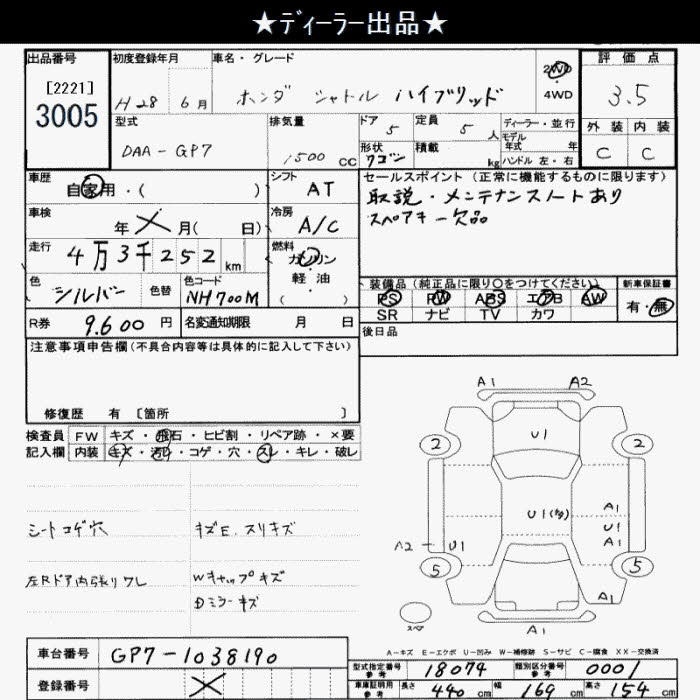 ★ディーラー出品★
出品番号 初度登録年月 車名・グレード 2WD 評価点
[2221] 3005 H28 6月 ホンダ シャトル ハイブリッド 4WD 3.5
型式 排気量 ドア 定員 ディーラー・並行 外装 内装
DAA-GP7 1500 CC 5 5人 モデル年式 年 C C
形状 ワゴン 積載 kg ハンドル 左・右
車歴 自家用・( ) シフト AT セールスポイント(正常に機能するものに限ります)
取説・メンテナンスノートあり
車検 年 月( 日) 冷房 A/C スペアキー欠品
走行 4万3千252km 燃料 ガソリン・軽油( )
色 シルバー 色替 色コード NH700M 装備品(純正品に限り○をつけてください) 新車保証書
PS PW ABS エアB AW 有・無
SR ナビ TV カワ
R券 9.600円 名変通知期限 月 日 後日品
注意事項申告欄(不具合内容等は具体的に記入して下さい)
修復歴 有 〔箇所 〕
検査員 FW キズ・飛石・ヒビ割・リペア跡・×要
記入欄 内装 キズ・汚れ・コゲ・穴・スレ・キレ・破レ
A1 A2
U1
2 2
シートコゲ穴 キズE.スリキズ
U1(多) A1
U1
A1
A2 - U1
5 5
左Rドア内張りワレ Wキャップキズ
Dミラーキズ
A1
スペア A1
A-キズ E-エクボ U-凹み W-補修跡 S-サビ C-腐食 XX-交換済
車台番号 GP7-1038190 型式指定番号 参考 18074 類別区分番号 参考 0001
登録番号 車庫証明用 参考 長さ 440cm 幅 169cm 高さ 154cm